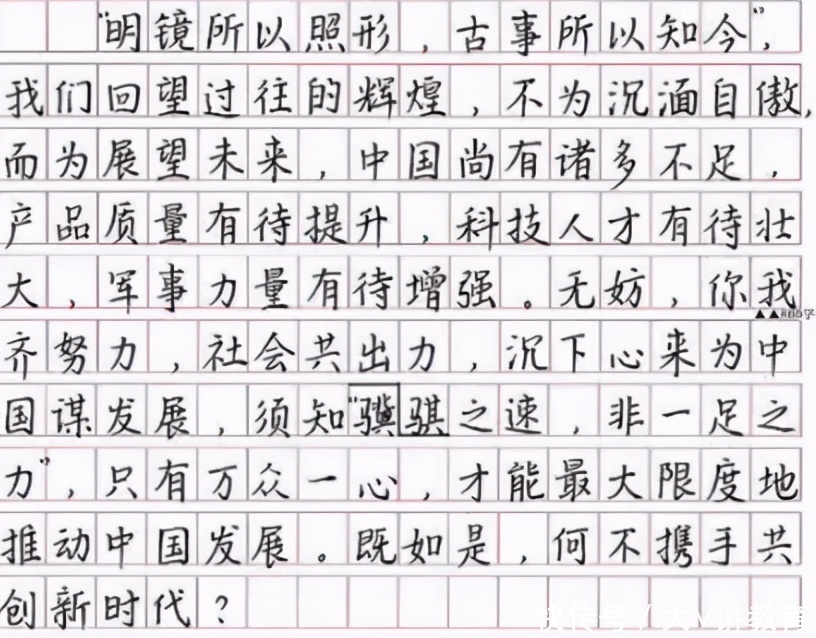 "明镜所以照形，古事所以知今"，
我们回望过往的辉煌，不为沉湎自傲，
而为展望未来，中国尚有诸多不足，
产品质量有待提升，科技人才有待壮
大，军事力量有待增强。无妨，你我
齐努力，社会共出力，沉下心来为中
国谋发展，须知"骥骐之速，非一足之
力"，只有万众一心，才能最大限度地
推动中国发展。既如是，何不携手共
创新时代？
快传号/大V讲教育